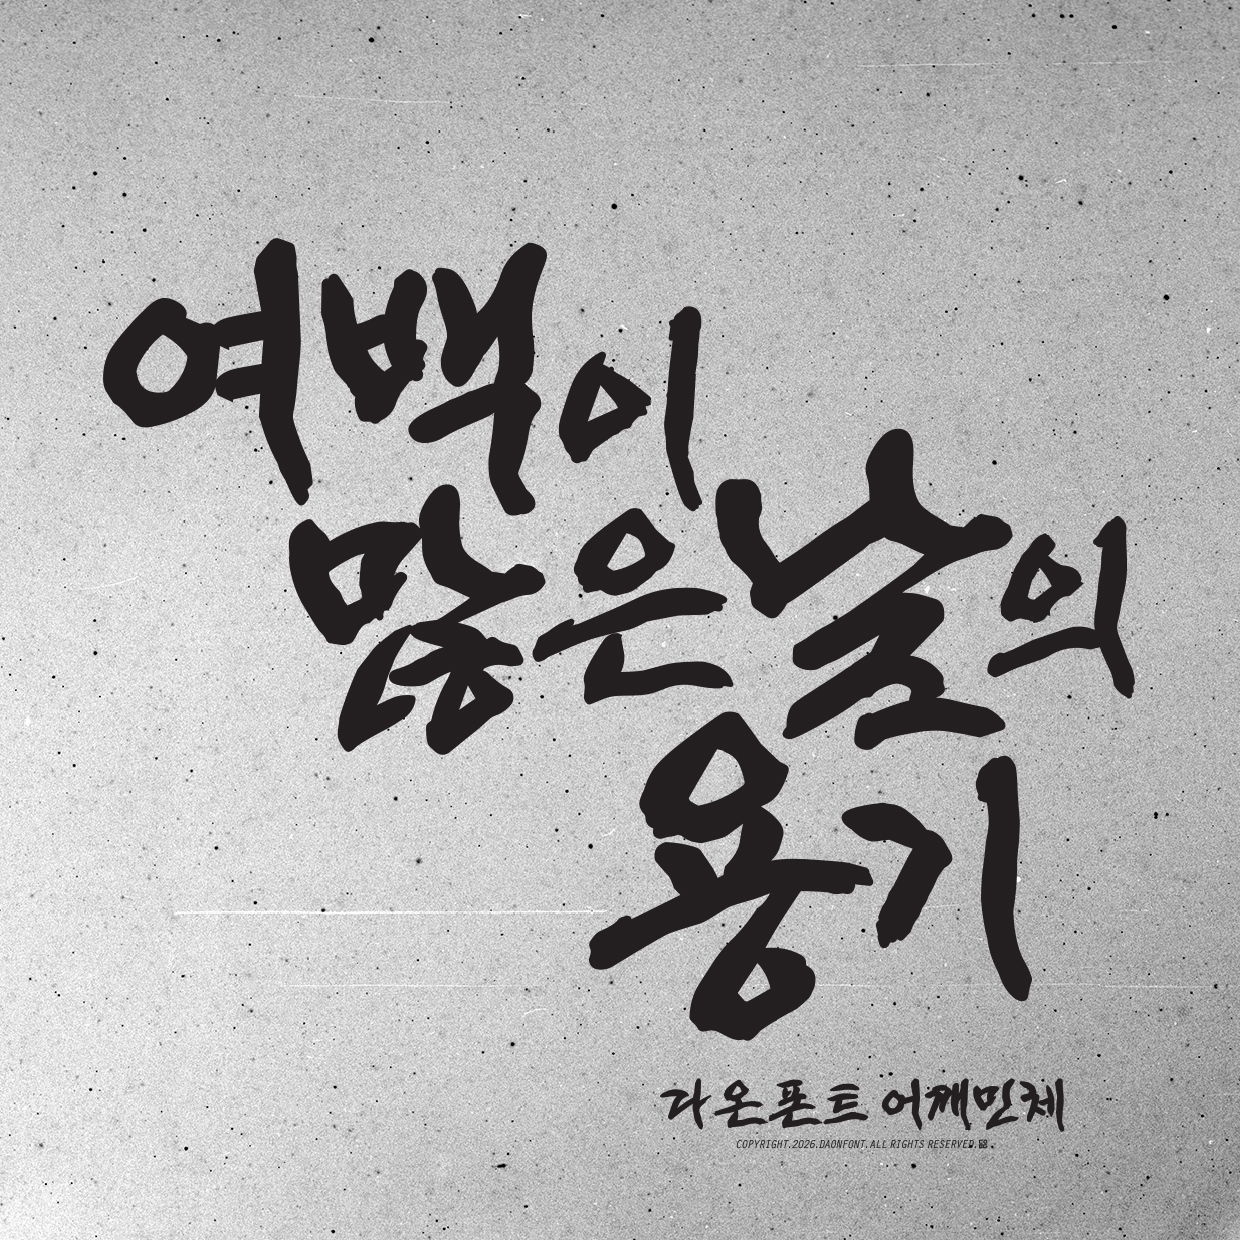 여백이
많은 날의
용기
다온폰트 어깨민체
COPYRIGHT.2026.DAONFONT.ALL RIGHTS RESERVED.